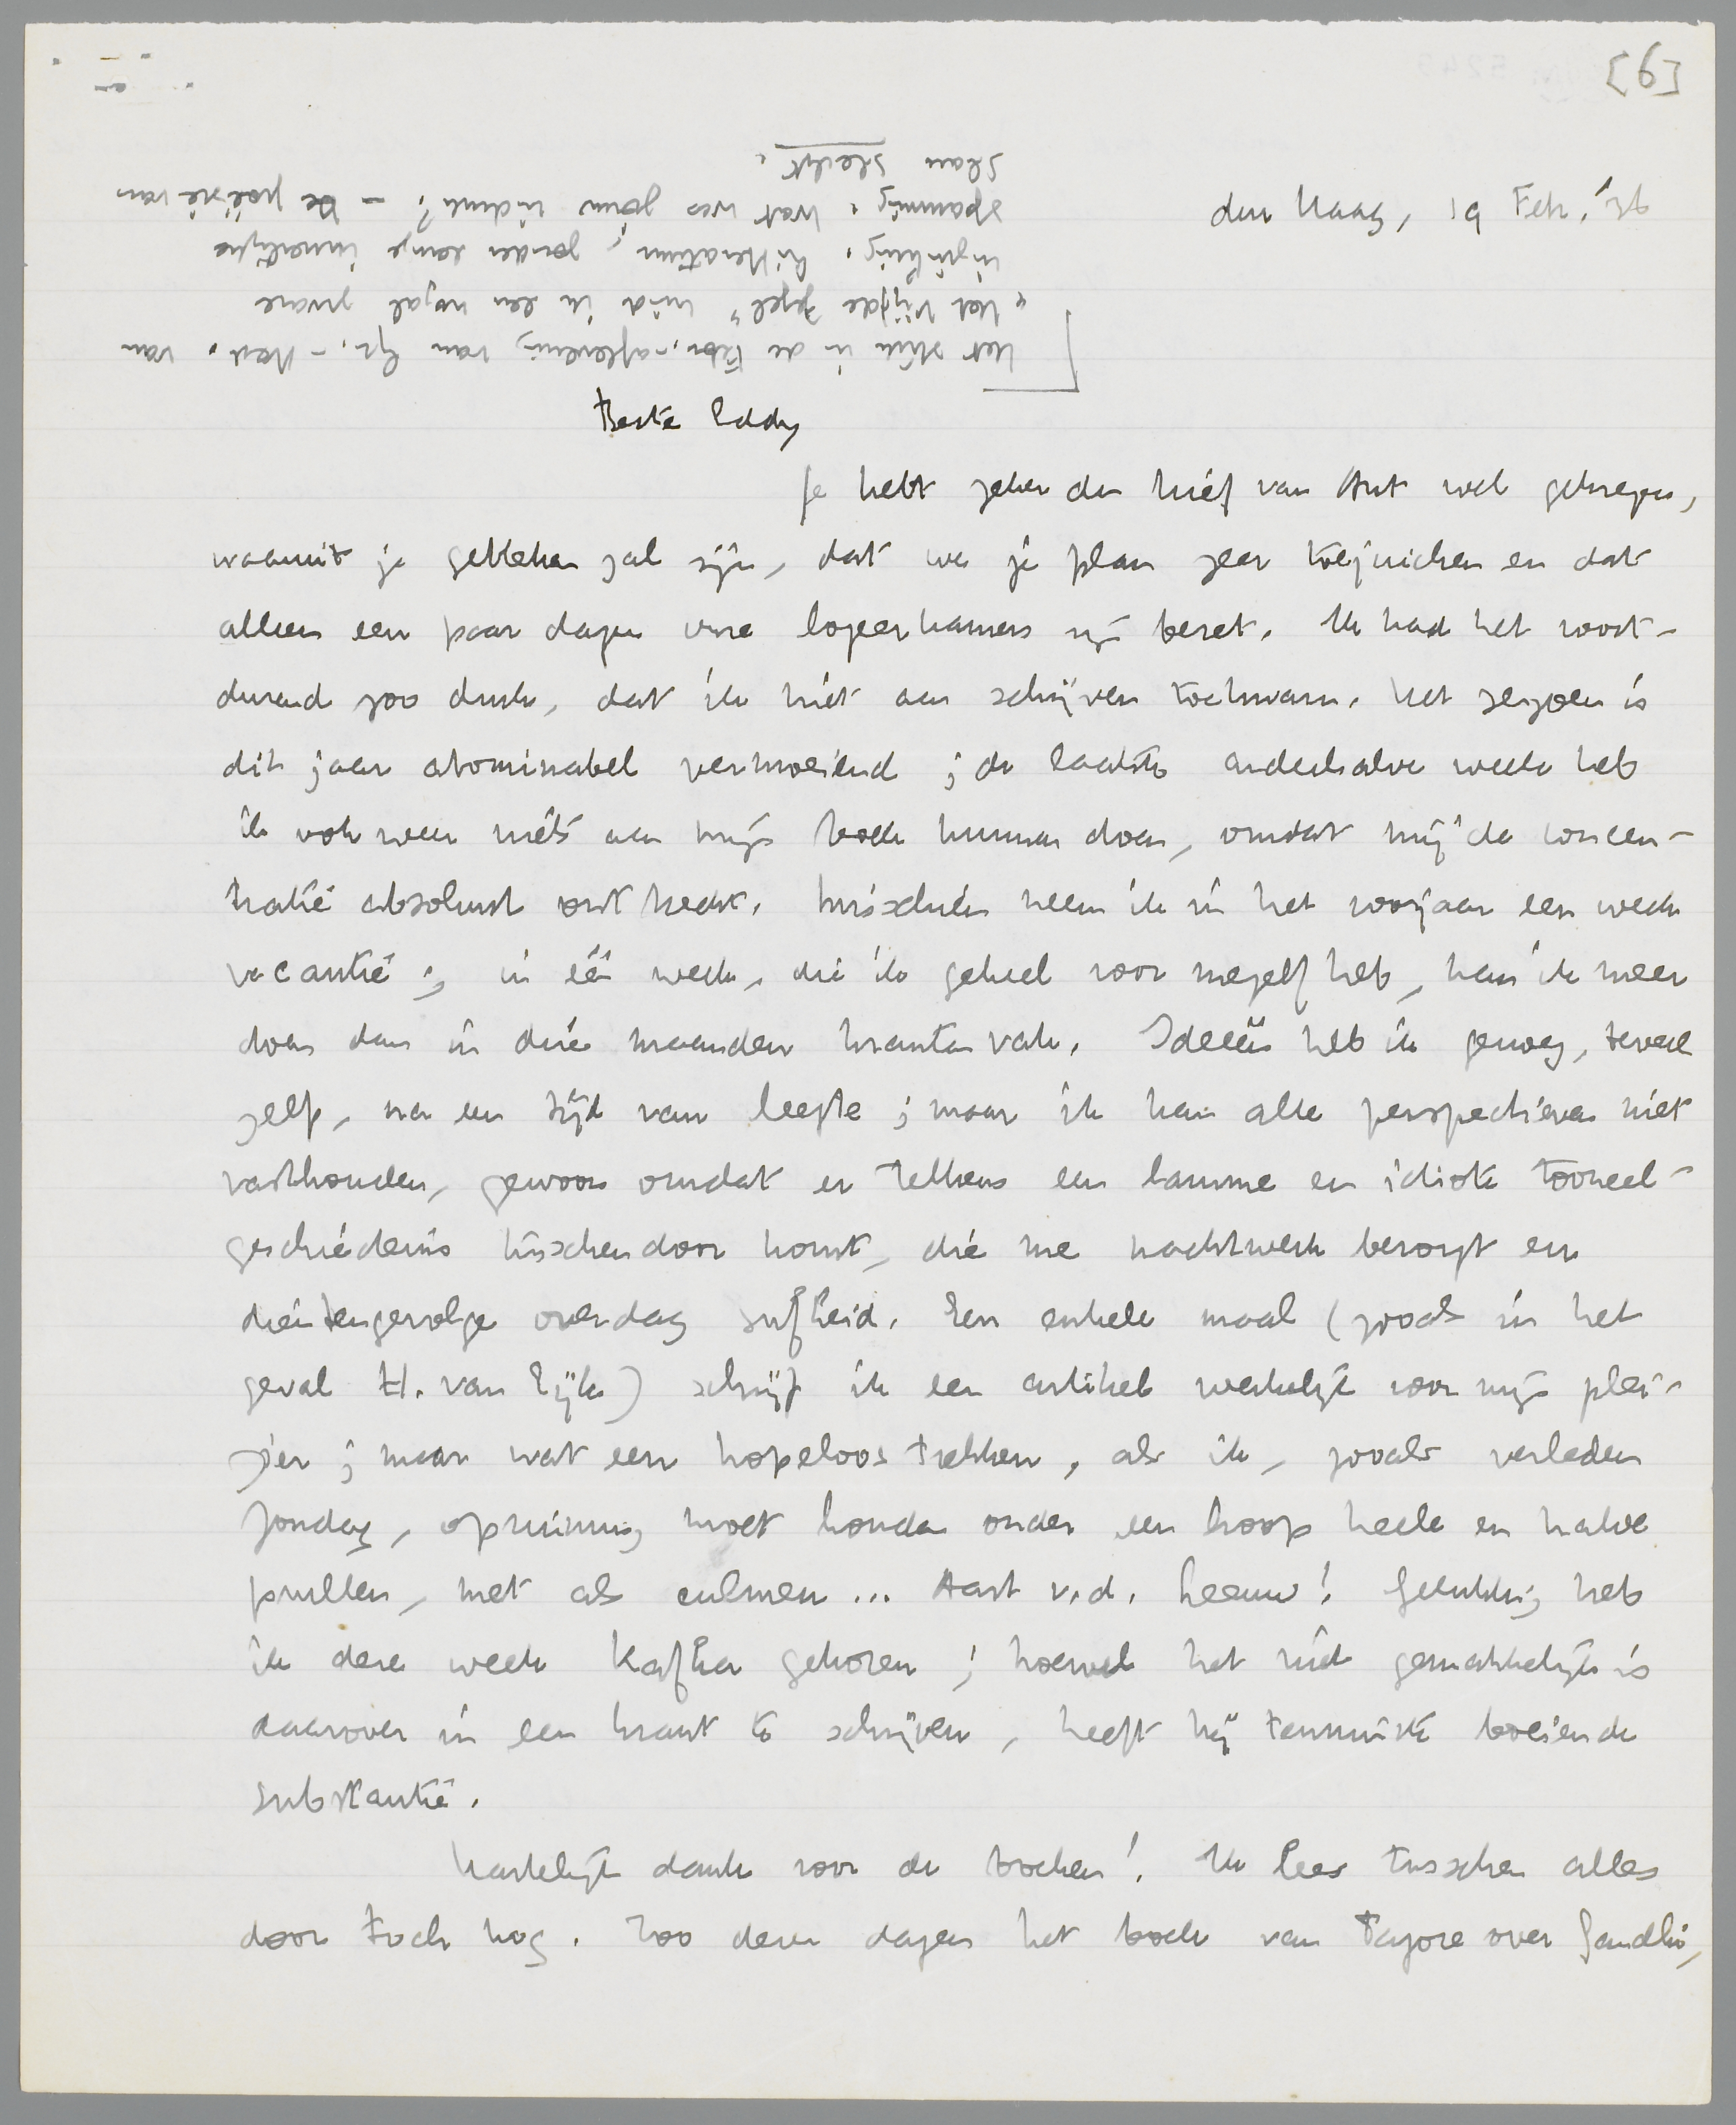 [6]
den Haag, 19 Febr. '36
Beste Eddy
Je hebt zeker den brief van Ant wel gekregen,
waaruit je gebleken zal zijn, dat we je plan zeer toejuichen en dat
alleen een paar dagen onze logeerkamers zijn bezet. Ik had het voort-
durend zoo druk, dat ik niet aan schrijven toekwam. Het seizoen is
dit jaar abominabel vermoeiend; de laatste anderhalve week heb
ik ook weer niets aan mijn boek kunnen doen, omdat mij de concen-
tratie absoluut ontbreekt. Misschien neem ik in het voorjaar een week
vacantie; in één week, die ik geheel voor mezelf heb, kan ik meer
doen dan in drie maanden krantenvak. Ideeën heb ik genoeg, teveel
zelfs, na een tijd van leegte; maar ik kan alle perspectieven niet
vasthouden, gewoon omdat er telkens een lamme en idiote tooneel-
geschiedenis tusschendoor komt, die me nachtwerk bezorgt en
dientengevolge overdag sufheid. Een enkele maal (zooals in het
geval H. van Eyk) schrijf ik een artikel werkelijk voor mijn plei-
zier; maar wat een hopeloos trekken, als ik, zooals verleden
Zondag, opruiming moet houden onder een hoop heele en halve
prullen, met als culmen... Aart v.d. Leeuw! Gelukkig heb
ik deze week Kafka gekozen; hoewel het niet gemakkelijk is
daarover in een krant te schrijven, heeft hij tenminste boeiende
substantie.
Hartelijk dank voor de boeken! Ik lees tusschen alles
door toch nog. Zoo dezer dagen het boek van Tagore over Gandhi,
Het stuk in de Febr.-aflevering van Gr.-Ned. van
"Het Vijfde Zegel" vind ik een nogal zware
inzinking. Litteratuur, zonder eenige innerlijke
spanning. Wat was jouw indruk? – De poëzie van
Slau slecht.